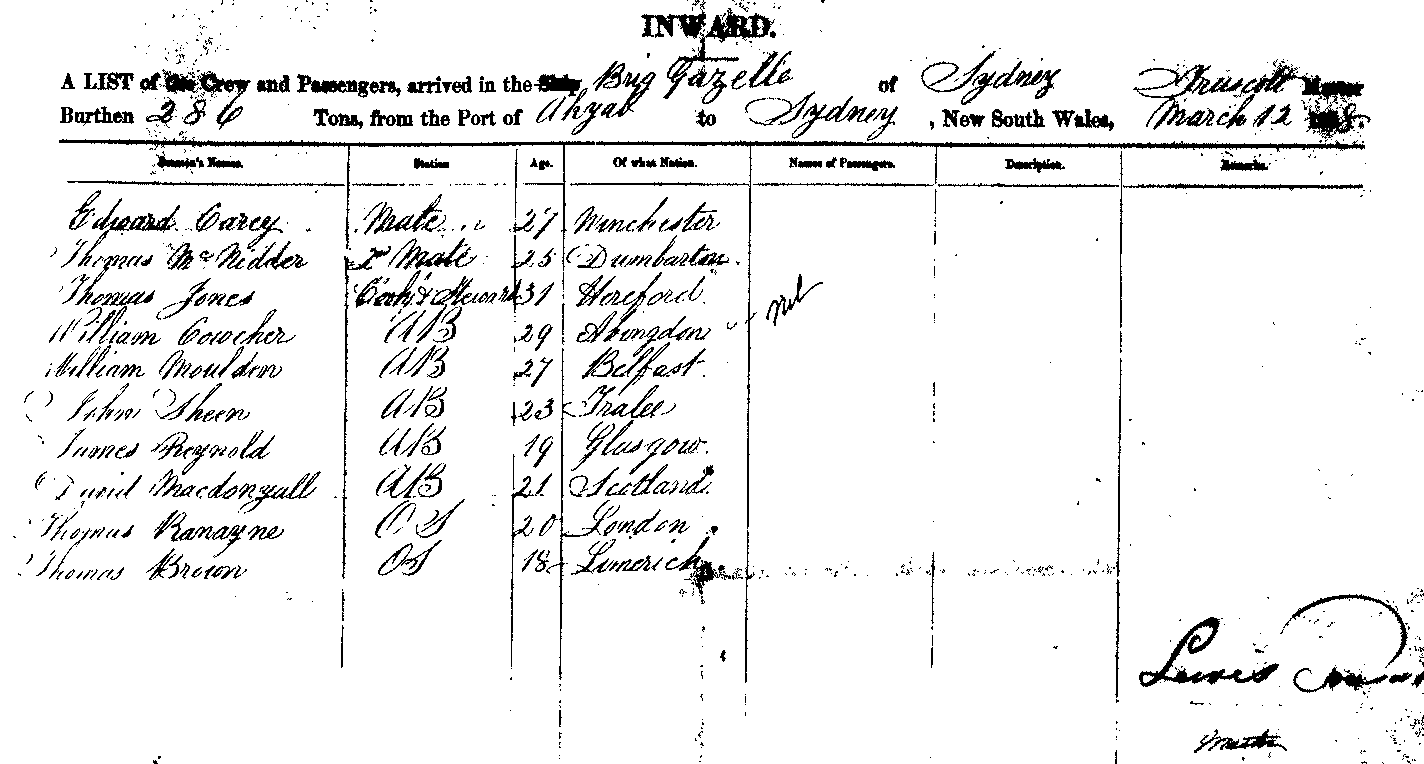 INWARD.
A LIST of the Crew and Passengers, arrived in the Ship Brig Gazelle of Sydney Truscott Master
Burthen 286 Tons, from the Port of Akyab to Sydney, New South Wales, March 12
Seamen's Names. Station Age. Of what Nation. Names of Passengers. Description. Remarks.
Edward Carey Mate 27 Winchester
Thomas McNidder 2d Mate 25 Dumbarton
Thomas Jones Cook & Steward 31 Hereford nil
William Cowcher AB 29 Abingdon
William Mouldon AB 27 Belfast
John Sheen AB 23 Tralee
James Reynold AB 19 Glasgow
David Macdongall AB 21 Scotland
Thomas Ranayne OS 20 London
Thomas Brown OS 18 Limerick
Lewis
Master